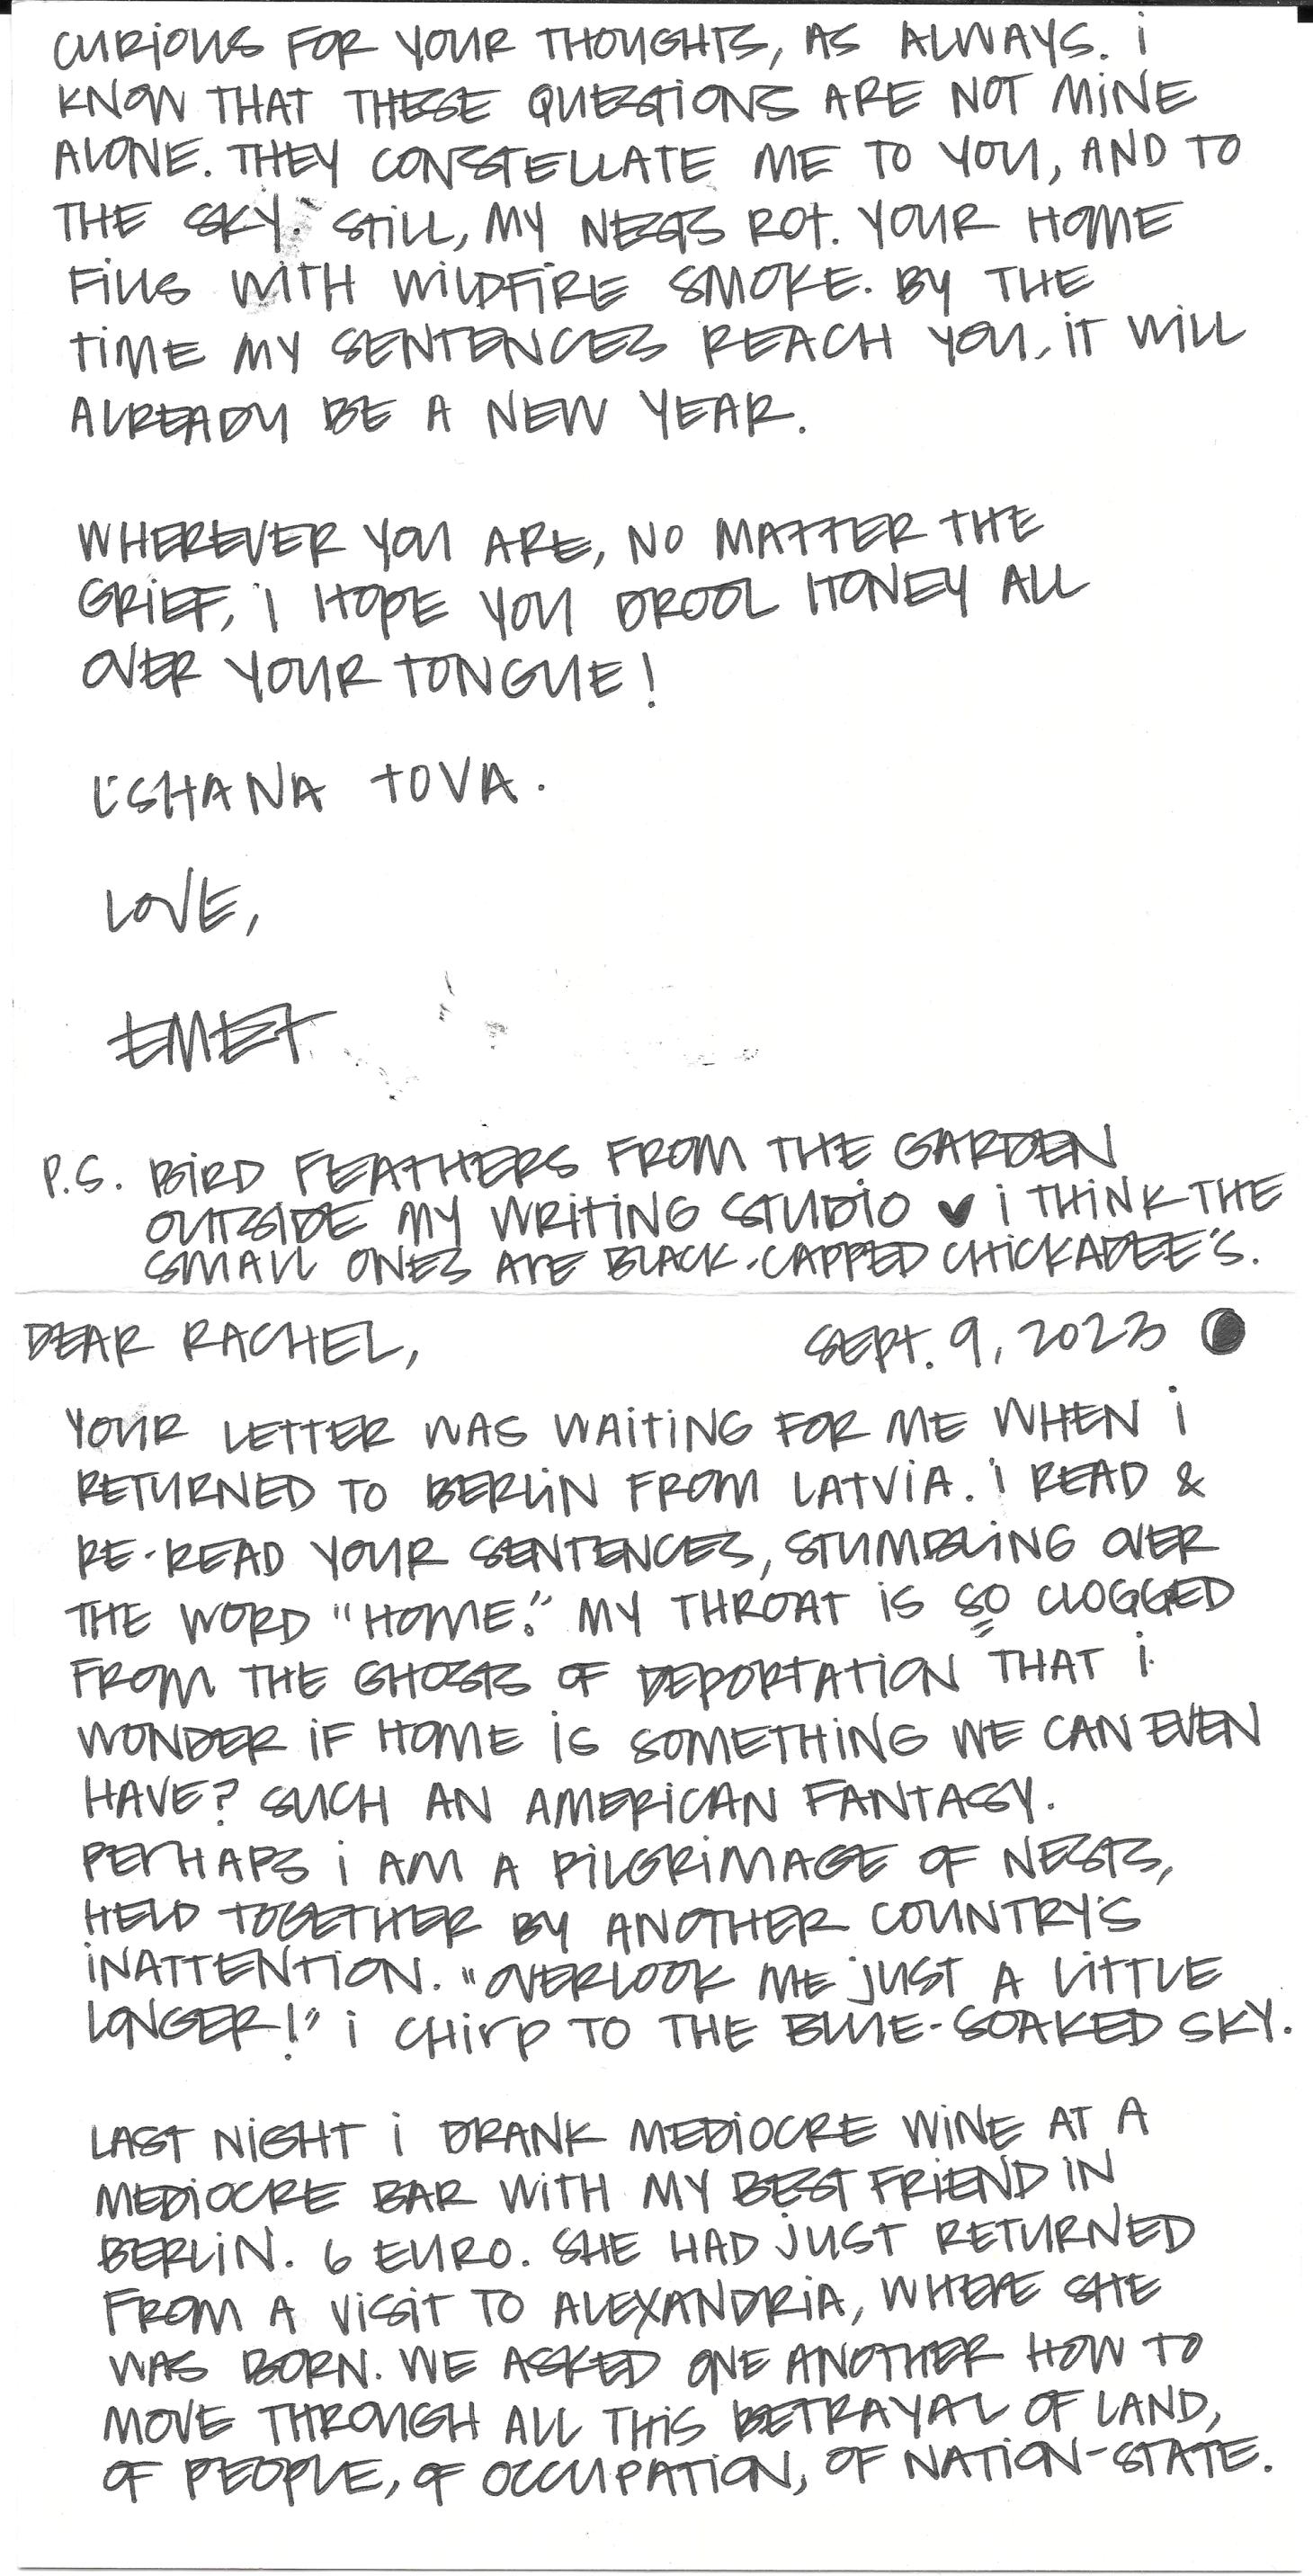 CURiOUS FOR YOUR THOUGHTS, AS ALWAYS. i
KNOW THAT THESE QUESTiONS ARE NOT MiNE
ALONE. THEY CONSTELLATE ME TO YOU, AND TO
THE SKY. STiLL, MY NESTS ROT. YOUR HOME
FiLLS WiTH WiLDFiRE SMOKE. BY THE
TiME MY SENTENCES REACH YOU, iT WiLL
ALREADY BE A NEW YEAR.
WHEREVER YOU ARE, NO MATTER THE
GRiEF, i HOPE YOU DROOL HONEY ALL
OVER YOUR TONGUE!
L'SHANA TOVA.
LOVE,
EMET
P.S. BiRD FEATHERS FROM THE GARDEN
OUTSiDE MY WRiTiNG STUDiO ♥ i THiNK THE
SMALL ONES ArE BLACK-CAPPED CHiCKADEE'S.
DEAR RACHEL, SEPT. 9, 2023
YOUR LETTER WAS WAiTiNG FOR ME WHEN i
RETURNED TO BERLiN FROM LATViA. i READ &
RE-READ YOUR SENTENCES, STUMBLiNG OVER
THE WORD "HOME." MY THROAT iS SO CLOGGED
FROM THE GHOSTS OF DEPORTATiON THAT i
WONDER iF HOME iS SOMETHiNG WE CAN EVEN
HAVE? SUCH AN AMERiCAN FANTASY.
PErHAPS i AM A PiLGRiMAGE OF NESTS,
HELD TOGETHER BY ANOTHER COUNTRY'S
iNATTENTiON. "OVERLOOK ME JUST A LiTTLE
LONGER!" i CHirP TO THE BLUE-SOAKED SKY.
LAST NiGHT i DRANK MEDiOCRE WiNE AT A
MEDiOCRE BAR WiTH MY BEST FRiEND IN
BERLiN. 6 EURO. SHE HAD JUST RETURNED
FROM A ViSiT TO ALEXANDRiA, WHERE SHE
WAS BORN. WE ASKED ONE ANOTHER HOW TO
MOVE THROUGH ALL THiS BETRAYAL OF LAND,
OF PEOPLE, OF OCCUPATiON, OF NATiON-STATE.